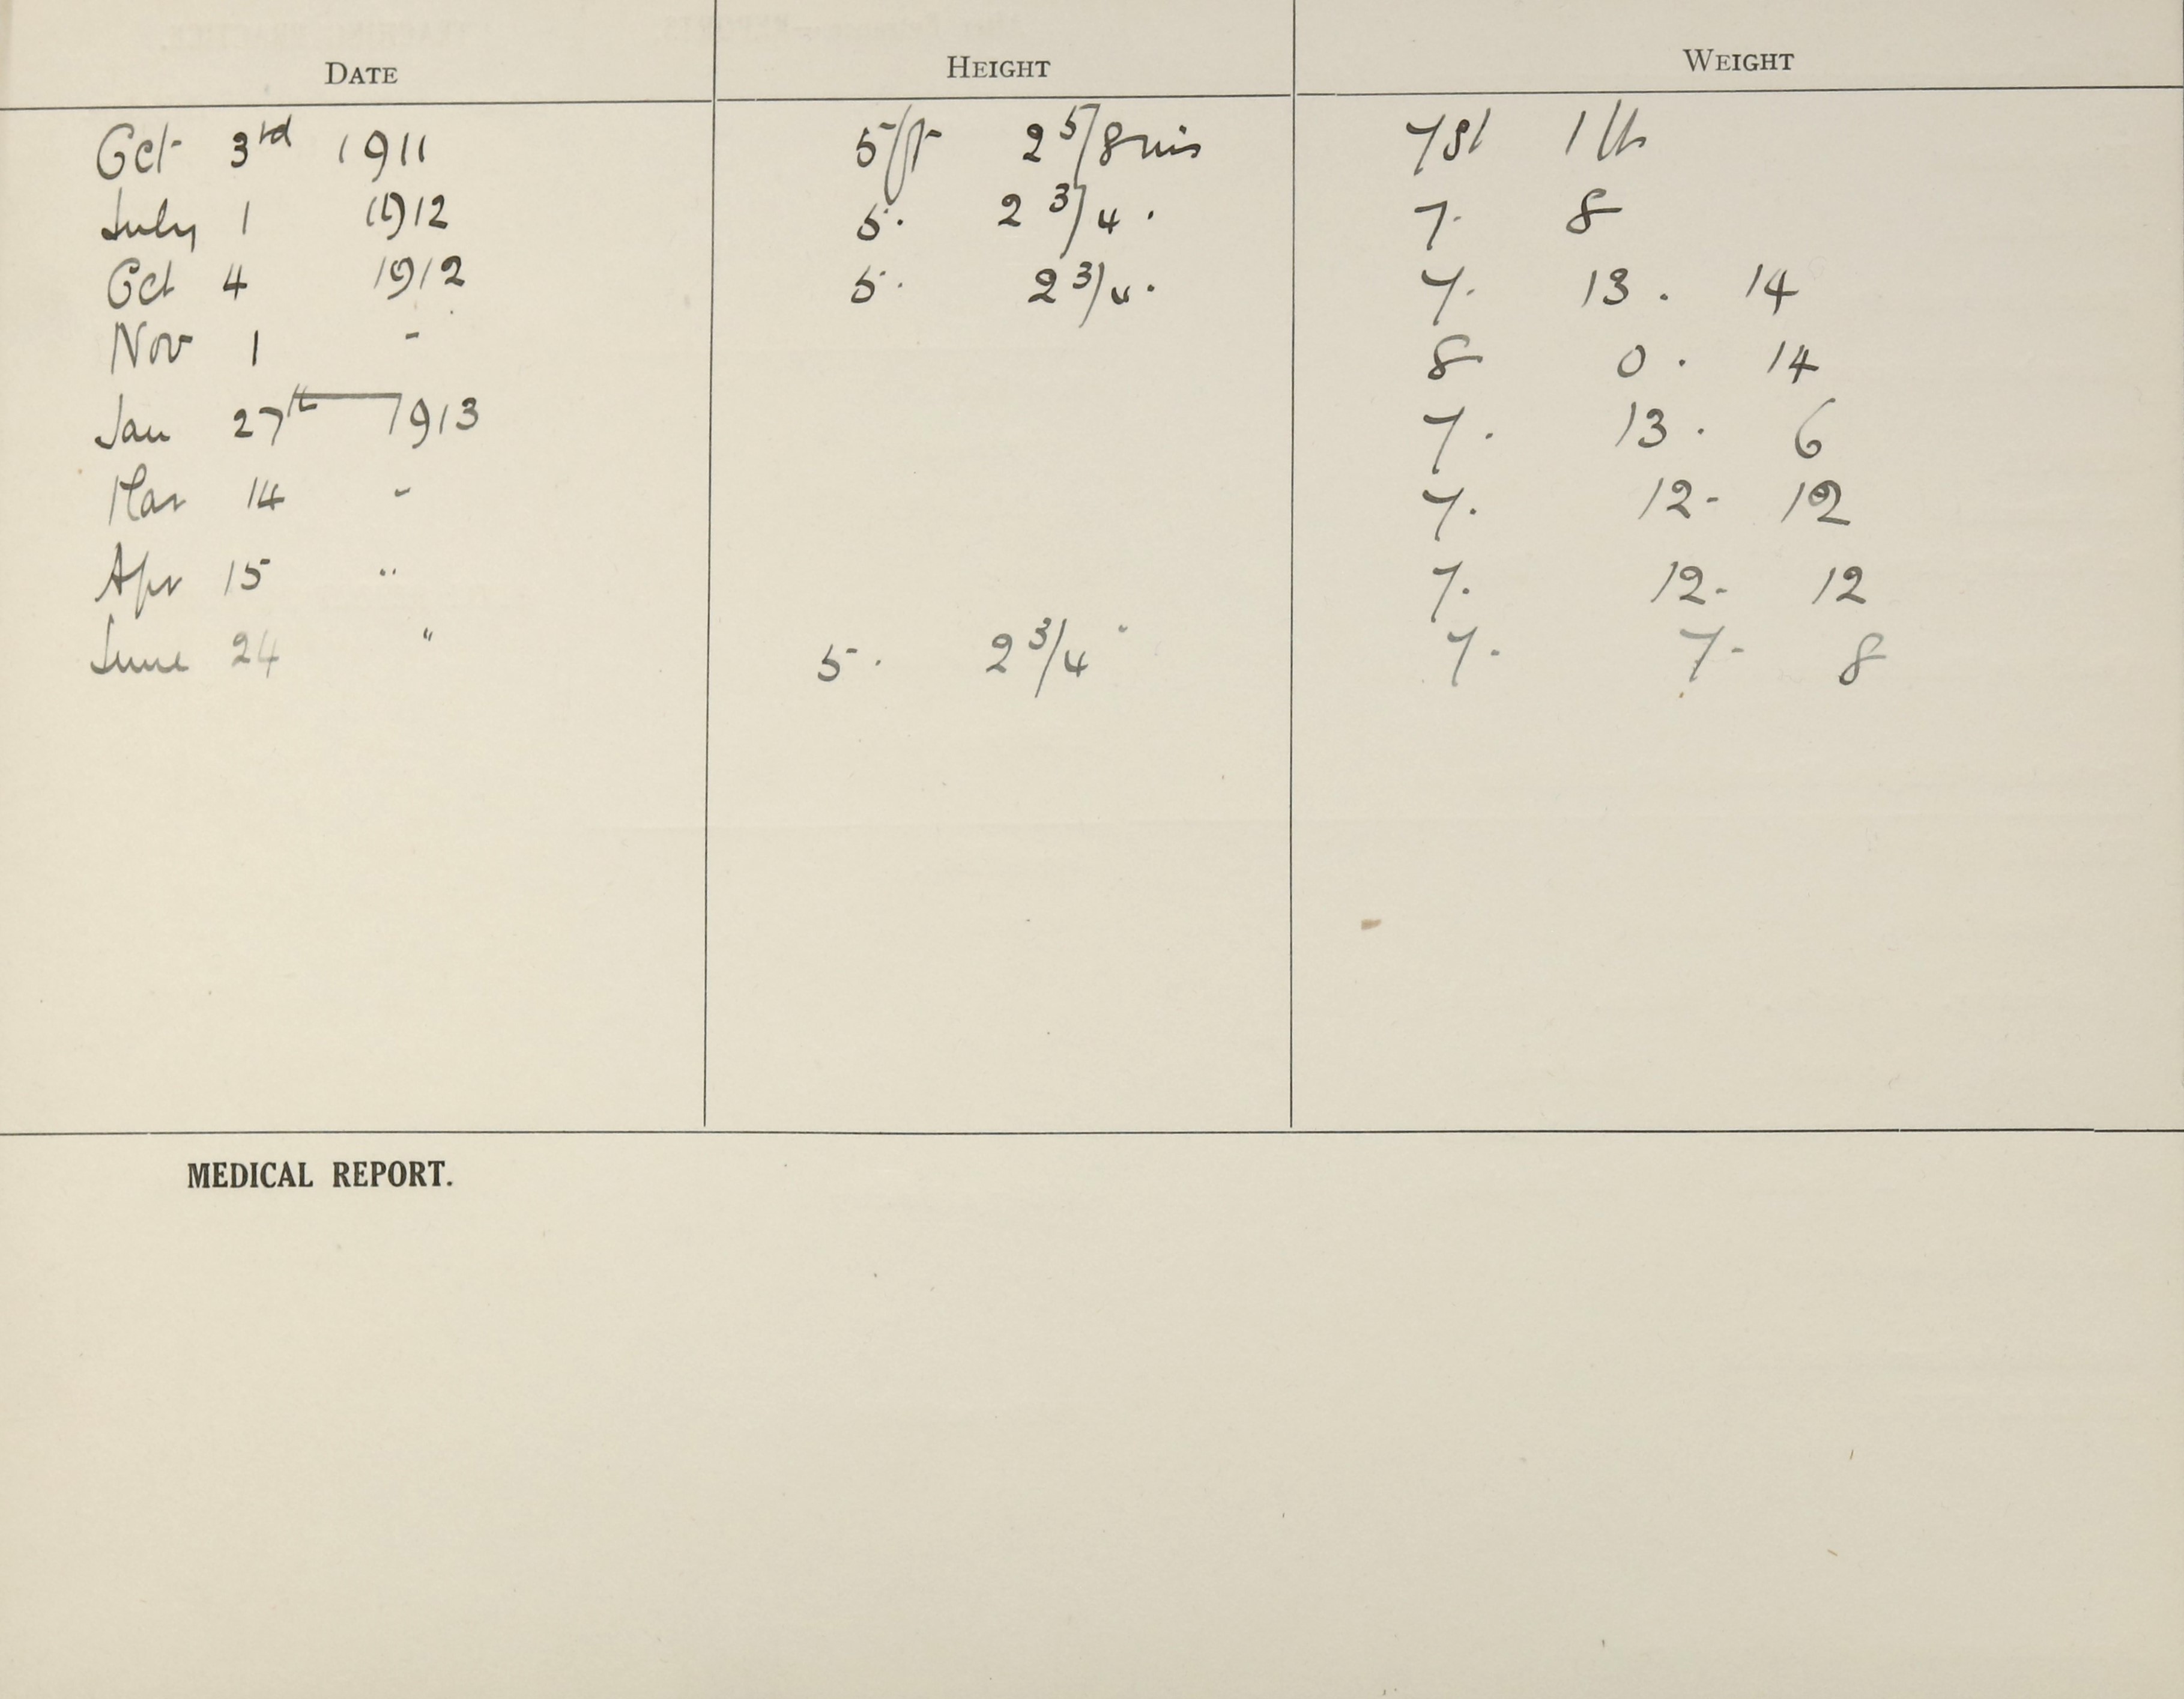 DATE HEIGHT WEIGHT
Oct 3rd 1911 5ft 2 5/8 ins 7st 1 lb
July 1 1912 5. 2 3/4. 7. 8
Oct 4 1912 5. 2 3/4. 7. 13. 14
Nov 1 - 8 0. 14
Jan 27th 1913 7. 13. 6
Mar 14 - 7. 12- 12
Apr 15 " 7. 12- 12
June 24 " 5. 2 3/4" 7. 7- 8
MEDICAL REPORT.